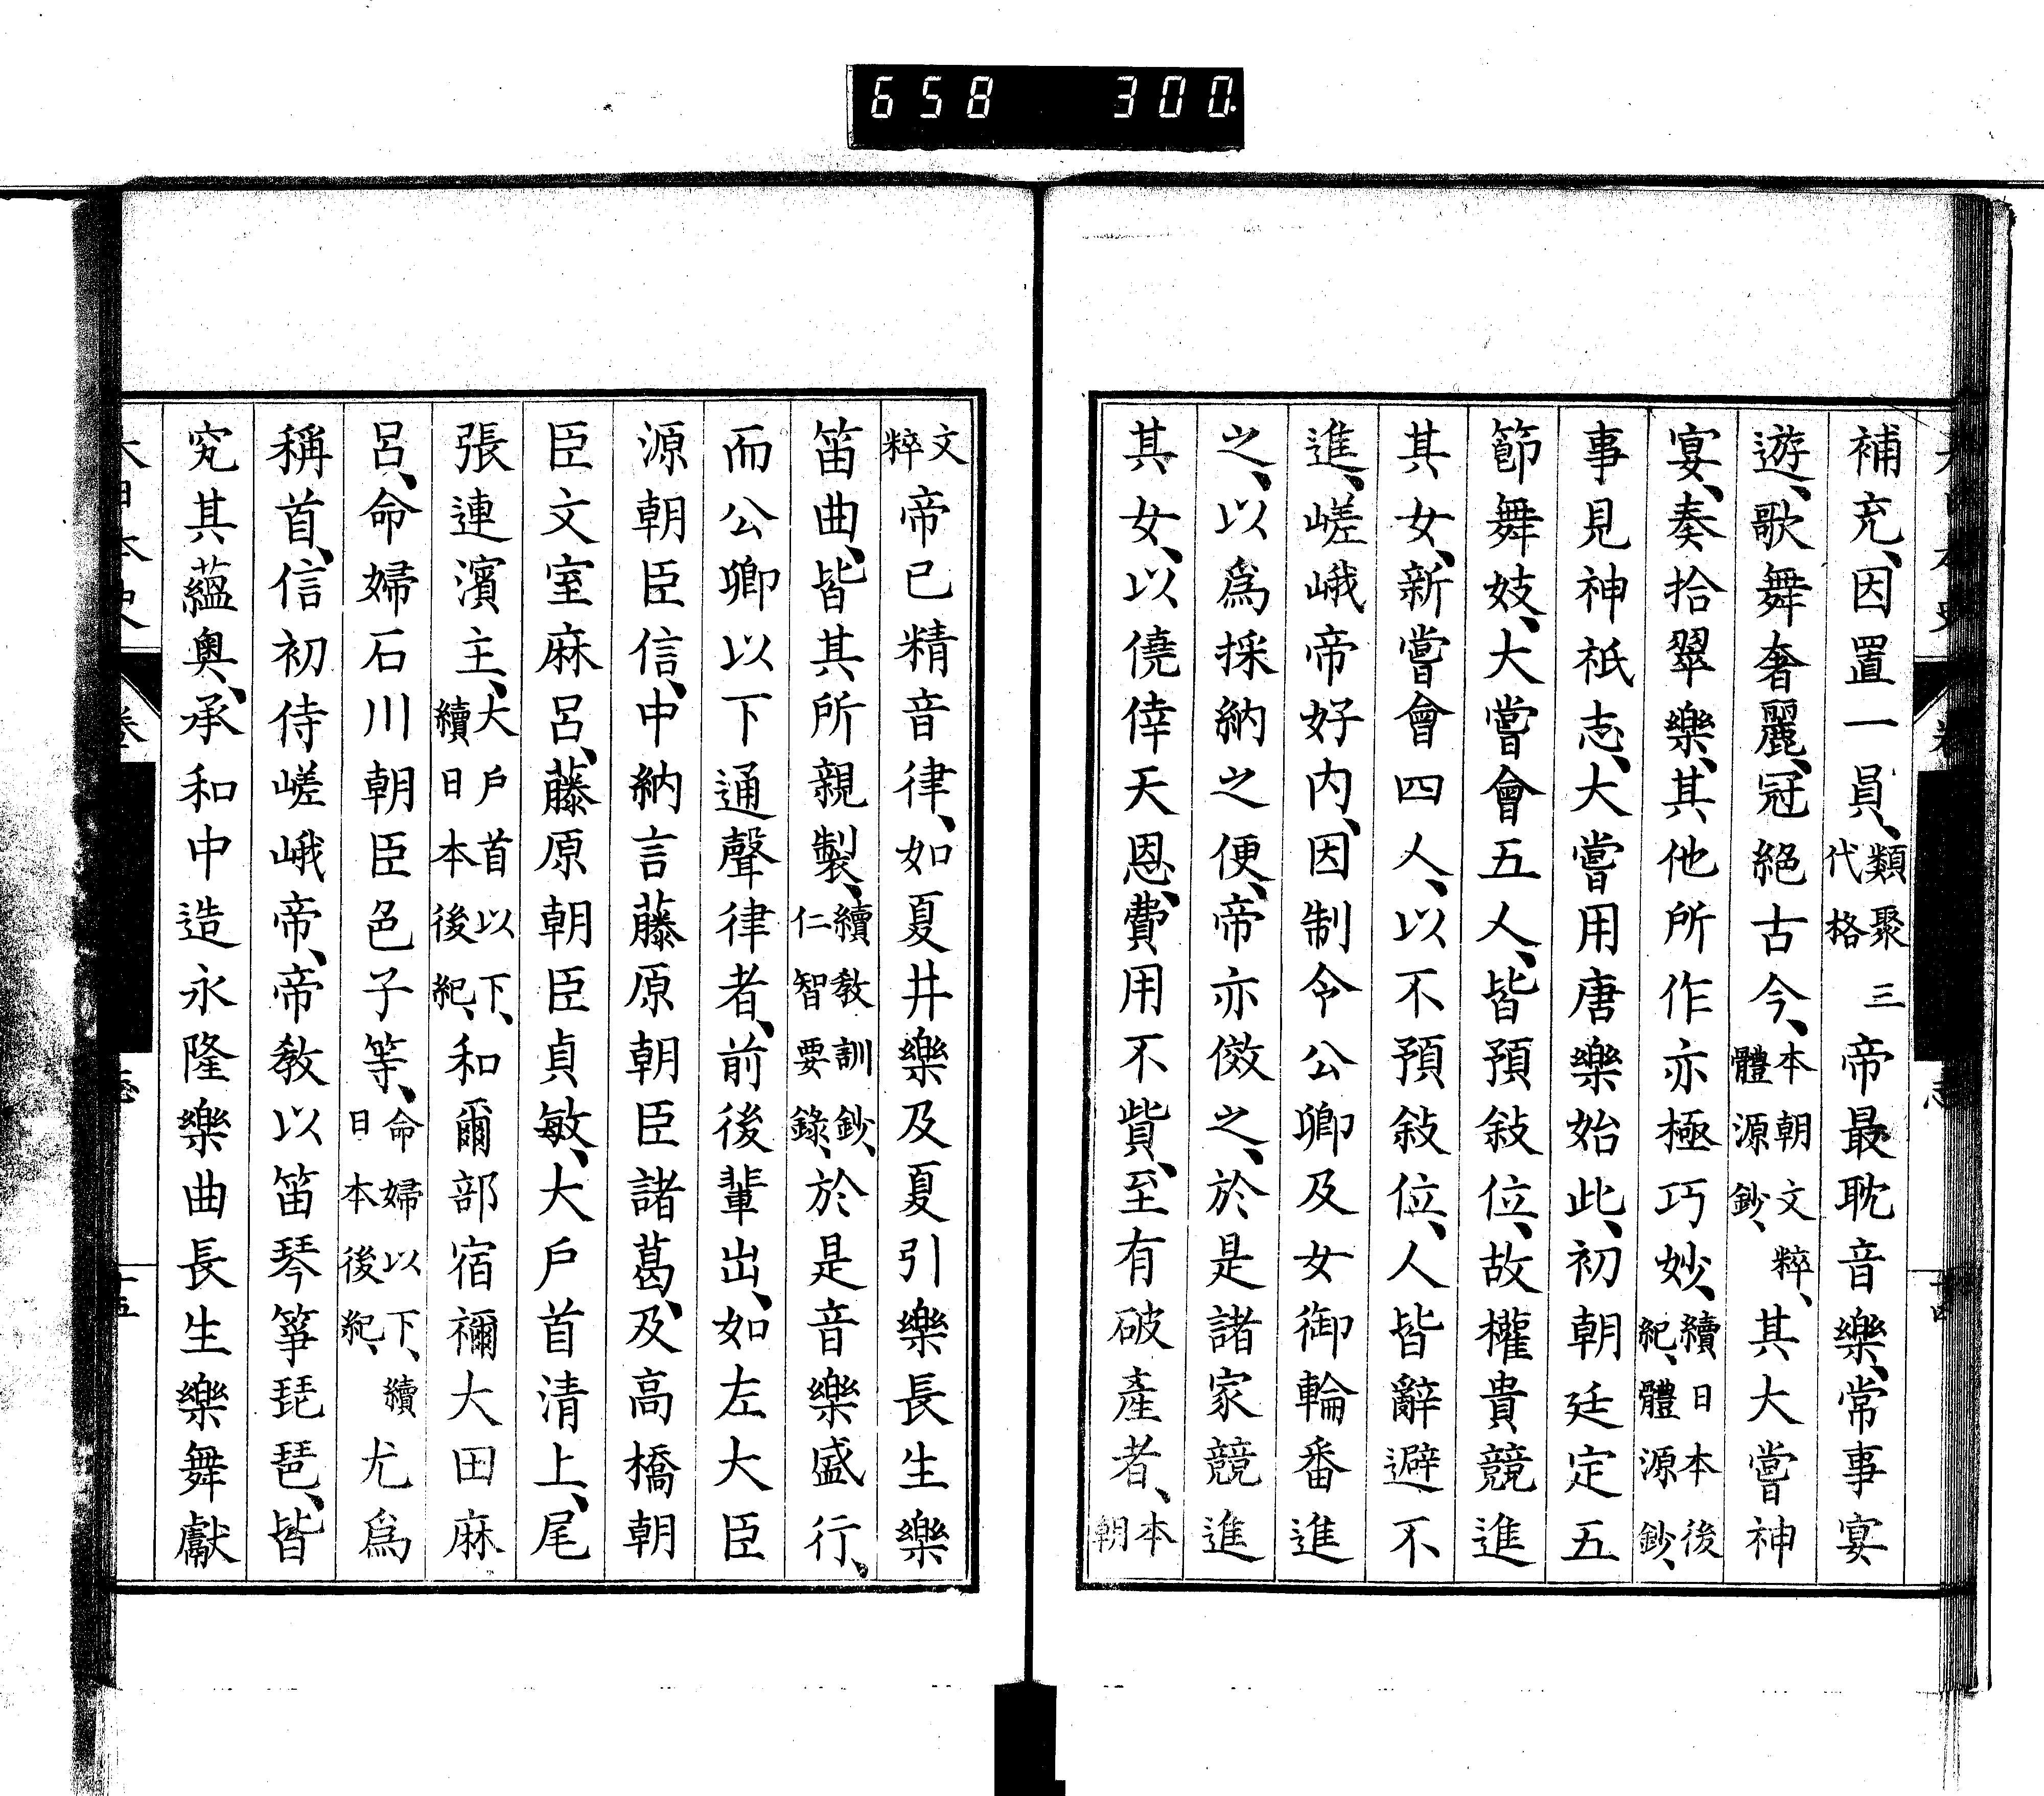 658 300
補充、因置一員、類聚三代格帝最耽音樂、常事宴
遊、歌舞奢麗、冠絕古今、本朝文粹、體源鈔、其大嘗神
宴、奏拾翠樂、其他所作亦極巧妙、續日本後紀、體源鈔、
事見神祇志、大嘗用唐樂始此、初朝廷定五
節舞妓、大嘗會五人、皆預敍位、故權貴競進
其女、新嘗會四人、以不預敍位、人皆辭避不
進、嵯峨帝好內、因制令公卿及女御輪番進
之、以爲採納之便、帝亦傚之、於是諸家競進
其女、以僥倖天恩、費用不貲、至有破產者、本朝
文粹帝已精音律、如夏井樂及夏引樂長生樂
笛曲、皆其所親製、續教訓鈔、仁智要錄、於是音樂盛行、
而公卿以下通聲律者、前後輩出、如左大臣
源朝臣信、中納言藤原朝臣諸葛、及高橋朝
臣文室麻呂、藤原朝臣貞敏、大戶首清上、尾
張連濱主、大戶首以下、續日本後紀、和爾部宿禰大田麻
呂、命婦石川朝臣色子等、命婦以下、續日本後紀、尤爲
稱首、信初侍嵯峨帝、帝教以笛琴箏琵琶、皆
究其蘊奧、承和中造永隆樂曲長生樂舞獻
大日本史